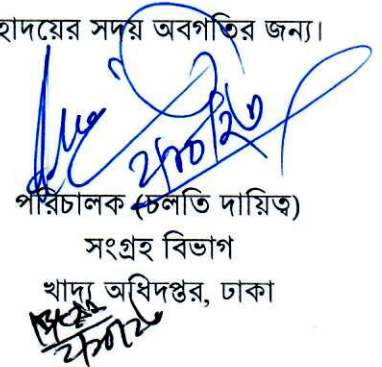 হোদয়ের সদয় অবগতির জন্য।
পরিচালক (চলতি দায়িত্ব)
সংগ্রহ বিভাগ
খাদ্য অধিদপ্তর, ঢাকা